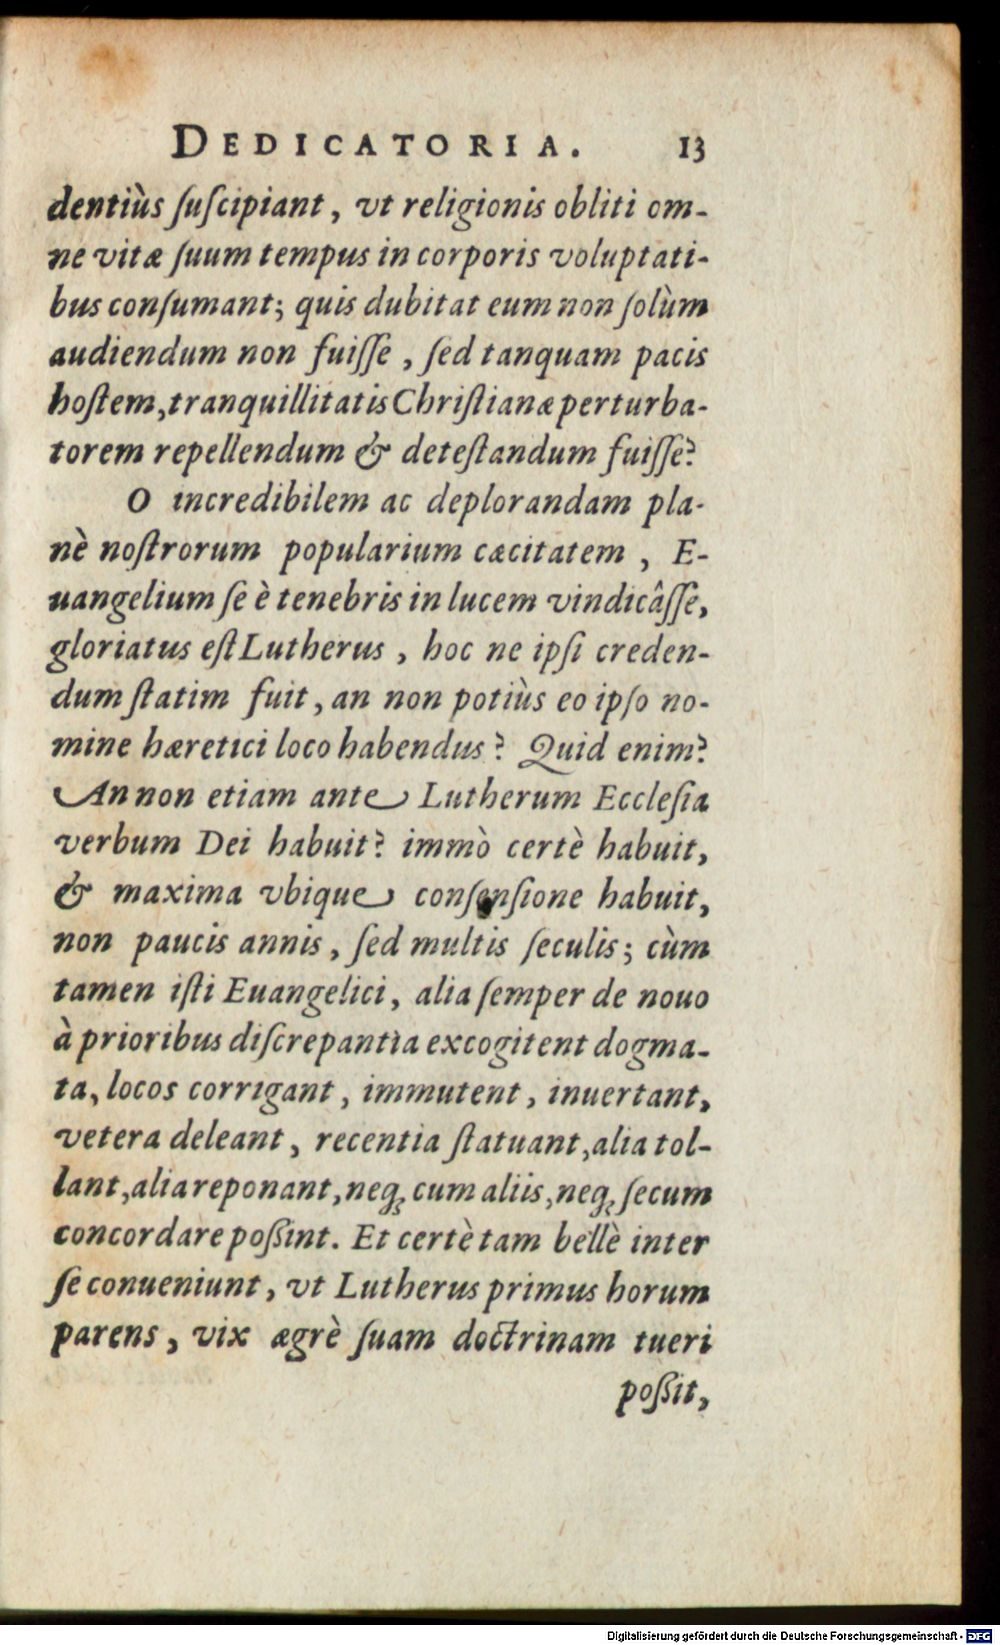 DEDICATORIA. 13
dentiùs ſuſcipiant, vt religionis obliti om-
ne vitæ ſuum tempus in corporis voluptati-
bus conſumant; quis dubitat eum non ſolùm
audiendum non fuiſſe, ſed tanquam pacis
hoſtem, tranquillitatis Chriſtianæ perturba-
torem repellendum & deteſtandum fuiſſe?
O incredibilem ac deplorandam pla-
nè noſtrorum popularium cæcitatem, E-
uangelium ſe è tenebris in lucem vindicâſſe,
gloriatus eſt Lutherus, hoc ne ipſi creden-
dum ſtatim fuit, an non potiùs eo ipſo no-
mine hæretici loco habendus? Quid enim?
An non etiam ante Lutherum Eccleſia
verbum Dei habuit? immò certè habuit,
& maxima vbique conſenſione habuit,
non paucis annis, ſed multis ſeculis; cùm
tamen iſti Euangelici, alia ſemper de nouo
à prioribus diſcrepantia excogitent dogma-
ta, locos corrigant, immutent, inuertant,
vetera deleant, recentia ſtatuant, alia tol-
lant, alia reponant, neq; cum aliis, neq; ſecum
concordare poßint. Et certè tam bellè inter
ſe conueniunt, vt Lutherus primus horum
parens, vix ægrè ſuam doctrinam tueri
poßit,
Digitalisierung gefördert durch die Deutsche Forschungsgemeinschaft - DFG